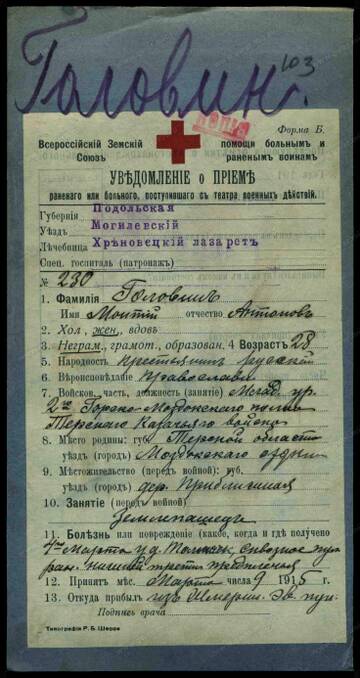 Головин.
103
Форма Б.
Всероссійскій Земскій
Союзъ
помощи больнымъ и
раненымъ воинамъ
УВѢДОМЛЕНІЕ О ПРІЕМѢ
раненаго или больного, поступившаго съ театра военныхъ дѣйствій.
Губернія Подольская
Уѣздъ Могилевскій
Лѣчебница Хрѣновецкій лазаретъ
Спец. госпиталь (патронажъ)
№ 230
1. Фамилія Головин
Имя отчество Антоновъ
2. Хол., жен., вдовъ
3. Неграм., грамот., образован. 4 Возрастъ 28
5. Народность крестьянинъ русскій
6. Вѣроисповѣданіе православн
7. Войсков. часть, должность (занятіе) Млад. ур.
2го Горско-Моздокскаго полка
Терскаго Казачьяго войска
8. Мѣсто родины: губ. Терской области
уѣздъ (городъ) Моздокскаго
9. Мѣстожительство (передъ войной): губ.
уѣздъ (городъ) дер. Приближная
10. Занятіе (передъ войной)
Землепашецъ
11. Болѣзнь или поврежденіе (какое, когда и гдѣ получено
4го Марта у д. Сквозное пул.
ран. нижней трети предплечья
12. Принятъ мѣс. Марта числа 9 1915 г.
13. Откуда прибылъ изъ Жмерин. Эв. пун.
Подпись врача
Типографія Р. Б. Шерра